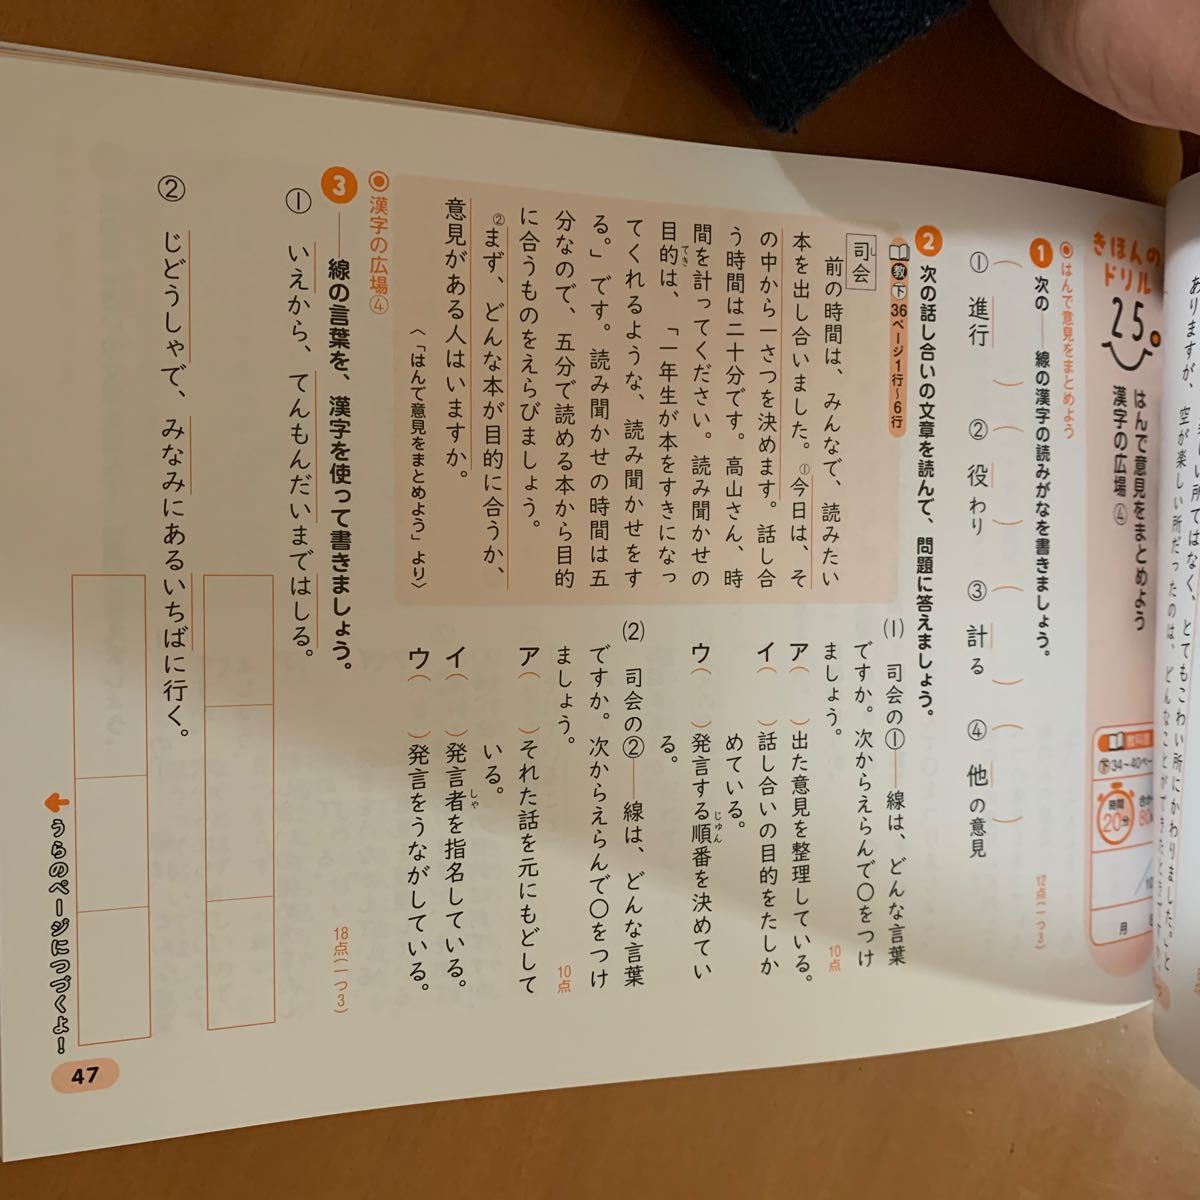 きほんの
ドリル
25
はんで意見をまとめよう
漢字の広場④
時間
20分
月
◉はんで意見をまとめよう
1 次の――線の漢字の読みがなを書きましょう。
12点(一つ3)
① 進行
② 役わり
③ 計る
④ 他の意見
2 次の話し合いの文章を読んで、問題に答えましょう。
教下36ページ1行～6行
司会
し
前の時間は、みんなで、読みたい
本を出し合いました。①今日は、そ
の中から一さつを決めます。話し合
う時間は二十分です。高山さん、時
間を計ってください。読み聞かせの
目的は、「一年生が本をすきになっ
てき
てくれるような、読み聞かせをす
る。」です。読み聞かせの時間は五
分なので、五分で読める本から目的
に合うものをえらびましょう。
②まず、どんな本が目的に合うか、
意見がある人はいますか。
〈「はんで意見をまとめよう」より〉
(1) 司会の①――線は、どんな言葉
ですか。次からえらんで○をつけ
ましょう。
10点
ア( )出た意見を整理している。
イ( )話し合いの目的をたしか
めている。
ウ( )発言する順番を決めてい
じゅん
る。
(2) 司会の②――線は、どんな言葉
ですか。次からえらんで○をつけ
ましょう。
10点
ア( )それた話を元にもどして
いる。
イ( )発言者を指名している。
しゃ
ウ( )発言をうながしている。
◉漢字の広場④
3 ――線の言葉を、漢字を使って書きましょう。
18点(一つ3)
① いえから、てんもんだいまではしる。
② じどうしゃで、みなみにあるいちばに行く。
うらのページにつづくよ！
47
ありますが、
空が楽しい所だったのは、どんなことができたときですか。
い所ではなく、とてもこわい所にかわりました。こと